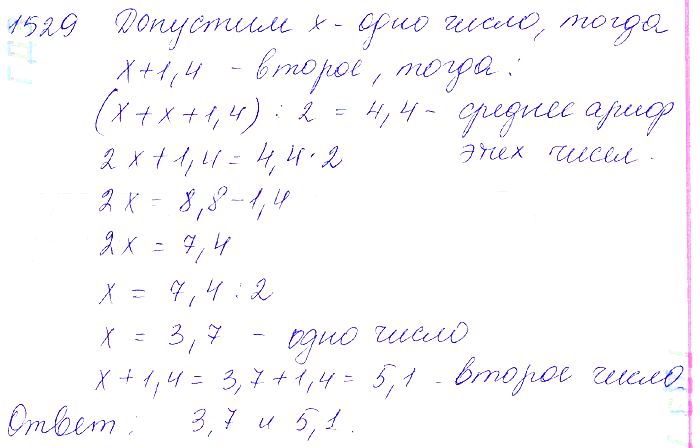 1529 Допустим x - одно число, тогда
x+1,4 - второе, тогда:
(x+x+1,4) : 2 = 4,4 - среднее ариф
2x+1,4 = 4,4·2 этех чисел.
2x = 8,8-1,4
2x = 7,4
x = 7,4 : 2
x = 3,7 - одно число
x+1,4 = 3,7+1,4 = 5,1 - второе число
Ответ: 3,7 и 5,1.